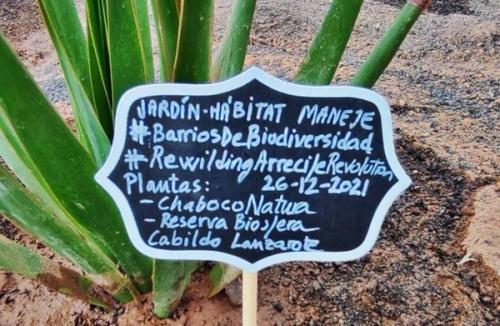 JARDÍN-HÁBITAT MANEJE
#BarriosDeBiodiversidad
#RewildingArrecifeRevolution
Plantas: 26-12-2021
- Chaboco Natura
- Reserva Biosfera
Cabildo Lanzarote